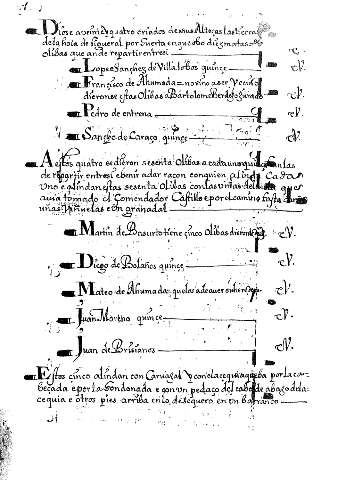 Diose a
quatro criados de sus Altezas las tierras
de la hoia de figueral por suerta en que obo diez matas
Olibas que an de repartir entresi
Lope Sanchez de Villalobos quinçe
Françisco de Ahumada no vino a ser y
dieron se estas Olibas a Bartolome
Pedro de entrena
Sancho de Caraço quinçe
A estos quatro se dieron sesenta Olibas a cada uno quinçe las
de repartir entresi e benir a dar raçon con quien alindan Cada
Uno e alindan estas sesenta Olibas con las viñas del que
avia tomado el Comendador Castillo e por el camino fasta
viñas Viñuelas e en granadal
Martin de Basurto tiene çinco Olibas
Diego de Bolaños quinçe
Mateo de Ahumada que las a de aver
Juan Moreno quinçe
Juan de
Estos çinco alindan con Carvajal y con la cequia que ba por la ca
beçada e por la hondonada e con un pedaço del cabo de abajo de la
cequia e otros pies arriba en lo de sequero en un barranco